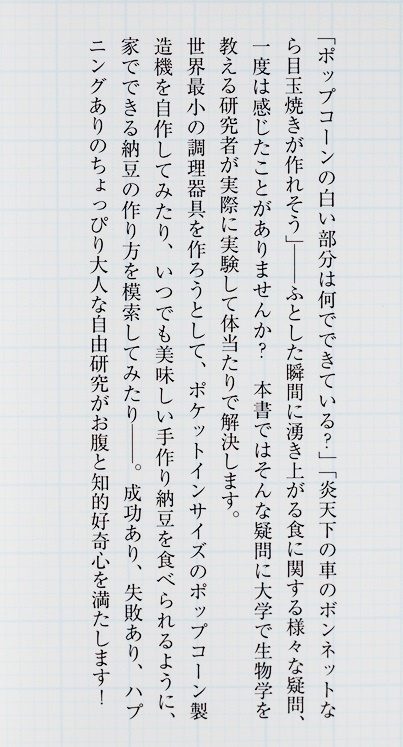 「ポップコーンの白い部分は何でできている?」「炎天下の車のボンネットな
ら目玉焼きが作れそう」――ふとした瞬間に湧き上がる食に関する様々な疑問、
一度は感じたことがありませんか? 本書ではそんな疑問に大学で生物学を
教える研究者が実際に実験して体当たりで解決します。
世界最小の調理器具を作ろうとして、ポケットインサイズのポップコーン製
造機を自作してみたり、いつでも美味しい手作り納豆を食べられるように、
家でできる納豆の作り方を模索してみたり――。成功あり、失敗あり、ハプ
ニングありのちょっぴり大人な自由研究がお腹と知的好奇心を満たします!